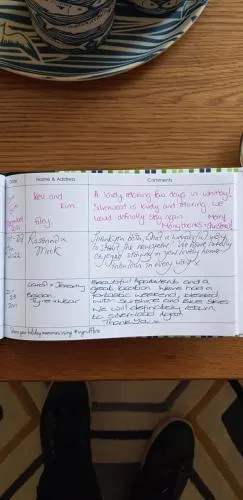 Date Name & Address Comments
Kev and
Kim.
Filey
A lovely relaxing few days in Whitby!
Silverwood is lovely and relaxing. We
would definitely stay again. Many
Many thanks
Rosanna &
Mick
2022
Thankyou both, what a wonderful way
to start the new year! We have totally
enjoyed staying in your lovely home
from home in every way x
Carol & Jeremy
Boldon
Tyne & Wear
28
2021
Beautiful Appartments and a
great location. We've had a
fantastic weekend, blessed
with sunshine and blue skies
We will definitely return
to Silverwood Apart
Thank you x
Share your holiday memories using